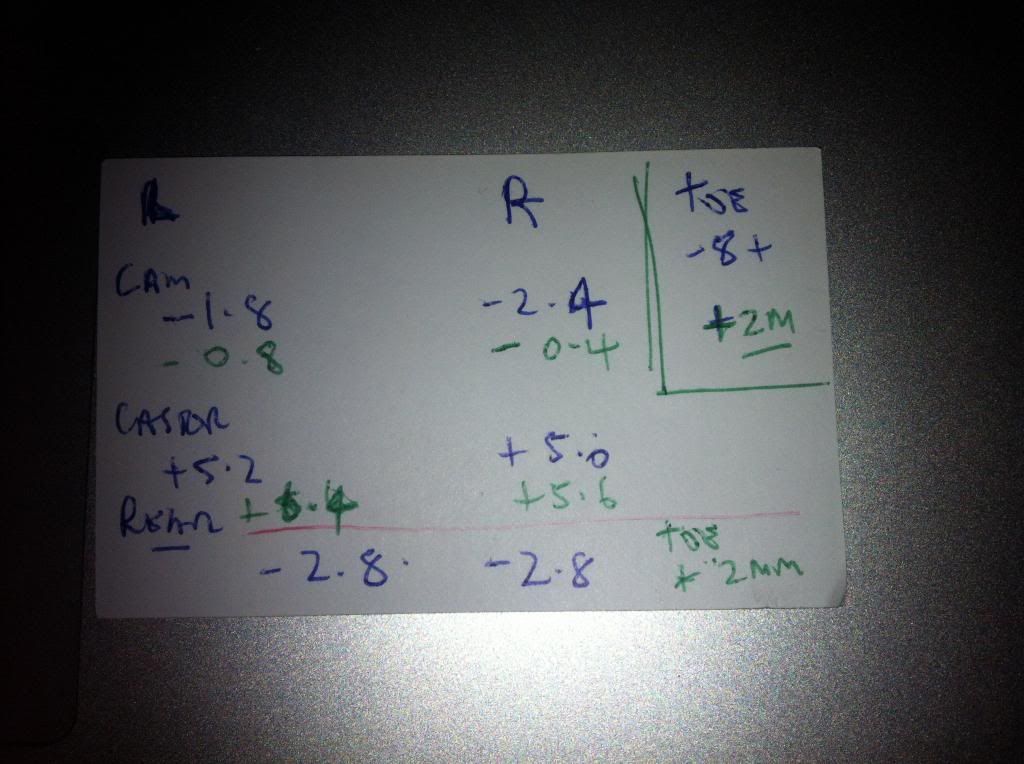 L R
CAM
-1.8 -2.4
-0.8 -0.4
toe
-8+
+2M
CASTOR
+5.2 +5.0
+5.6
REAR
-2.8 -2.8
toe
+ 2mm